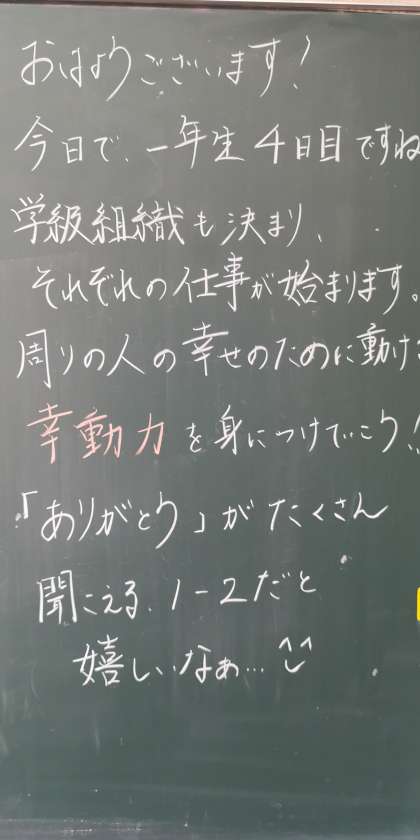 おはようございます!
今日で、一年生4日目ですね
学級組織も決まり、
それぞれの仕事が始まります。
周りの人の幸せのために動け
幸動力を身につけていこう!
「ありがとう」がたくさん
聞こえる、1-2だと
嬉しいなぁ…